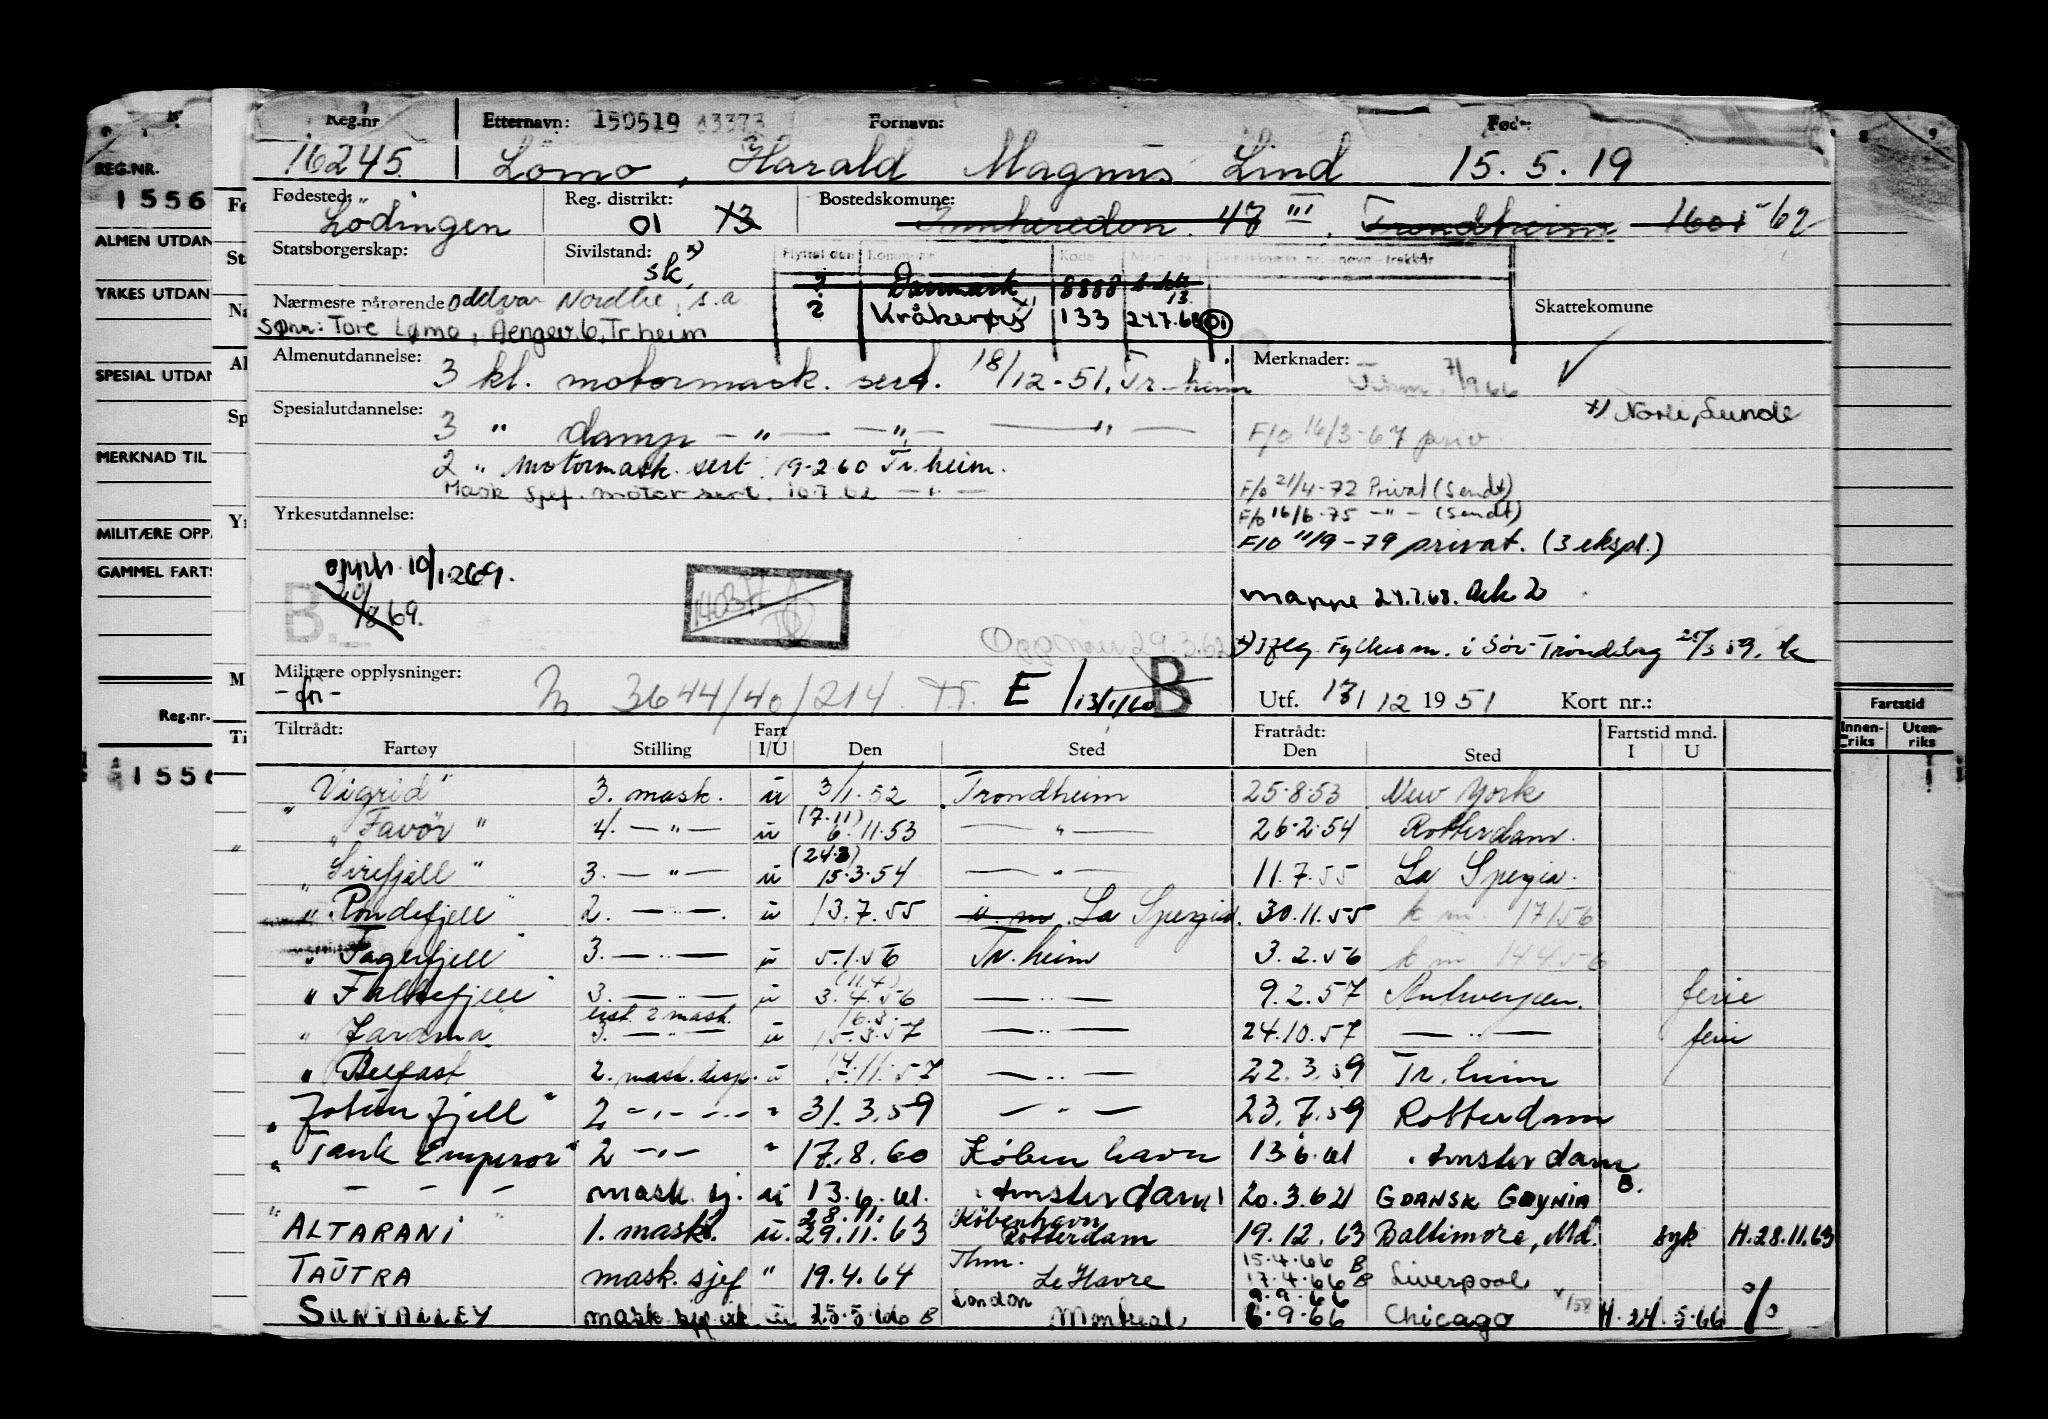 Reg.nr Etternavn: 150519 43373 Fornavn: Fød:
16245 Lömo, Harald Magnus Lind 15.5.19
Fødested: Reg. distrikt: Bostedskomune:
Lödingen 01 13 47 III, Trondheim 1601 - 62
Statsborgerskap: Sivilstand: sk x)
Flyttet den Kommune Kode
Danmark 8888
2 Kråkerøy 133 24.7.68 01
Skattekomune
Nærmeste pårørende Oddvar Nordlie, s.a
Sønn: Tore Lømo, Aengev. 6, Tr.heim
Almenutdannelse: 3 kl. motormask. sert. 18/12-51, Tr.heim
Merknader: 7/9 66
x) Norli, Lunde
Spesialutdannelse: 3 " damp - " - - " - - " -
F/O 16/3-67 priv.
2 " motormask. sert. 19.2.60 Tr.heim.
Mask sjef. motor sert. 10.7.62 - " -
F/o 21/4-72 Privat (Sendt)
F/o 16/6-75 - " - (sendt)
Yrkesutdannelse:
F/O 11/9-79 privat. (3 ekspl.)
opph. 10/12 69.
B. 69.
mappe 24.7.68. Ark 2
29.3.62
x) Iflg. Fylkesm. i Sør-Trøndelag 25/3 59.
Militære opplysninger:
- fri - 3644/40/214 Tr. E 13/1/60 B
Utf. 18/12 1951 Kort nr.:
Tiltrådt: Fart Fratrådt: Fartstid mnd.
Fartøy Stilling I/U Den Sted Den Sted I U
"Vigrid" 3. mask. u 3/1.52 Trondheim 25.8.53 New York
"Favör" 4. - " - u (7.11) 6.11.53 - " - 26.2.54 Rotterdam.
"Sirefjell" 3. - " - u (24.3) 15.3.54 - " - 11.7.55 La Spezia.
"Rondefjell" 2. - " - u 13.7.55 La Spezia. 30.11.55 k m. 17/1 56
"Fagerfjell" 3. - " - u 5.1.56 Tr.heim 3.2.56 k m. 14.4.56
"Falkefjell" 3. - " - u (11.4) 3.4.56 - " - 9.2.57 Antwerpen. ferie
"Jarama" 3. - " - 2 mask. u 16.3. 15.3.57 - " - 24.10.57 - " - ferie
"Belfast 2. mask. disp. u 14. 5.11.57 - " - 22.3.59 Tr.heim
"Jotunfjell" 2 - " - " 31.3.59 - " - 23.7.59 Rotterdam
"Tank Emperor" 2 - " - " 17.8.60 København 13.6.61 Amsterdam
- - - - mask. sj. u 13.6.61. Amsterdam 20.3.62 Gdansk Gdynia B.
"ALTARANI" 1. mask. u. 28.11. 29.11.63 København Rotterdam 19.12.63 Baltimore, Md. syk H.28.11.63
TAUTRA mask. sjef " 19.4.64 Thm. Le Havre 15.4.66 B 17.4.66 B Liverpool
SUNVALLEY mask sjef vik u 25.5.66 B London Montreal 9.9.66 6.9.66 Chicago H.24.5.66 %
REG.NR.
1556
ALMEN UTDAN
YRKES UTDAN
SPESIAL UTDAN
MERKNAD TIL
MILITÆRE OPP.
GAMMEL FARTS
Reg.nr.
1556
Fø
St
Na
Al
Sp
Yr
M
Ti
8 9
Fartstid
Innen-riks Uten-riks